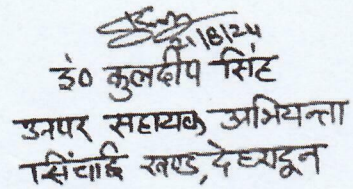 21/8/24
इं० कुलदीप सिंह
अपर सहायक अभियन्ता
सिंचाई खण्ड, देहरादून